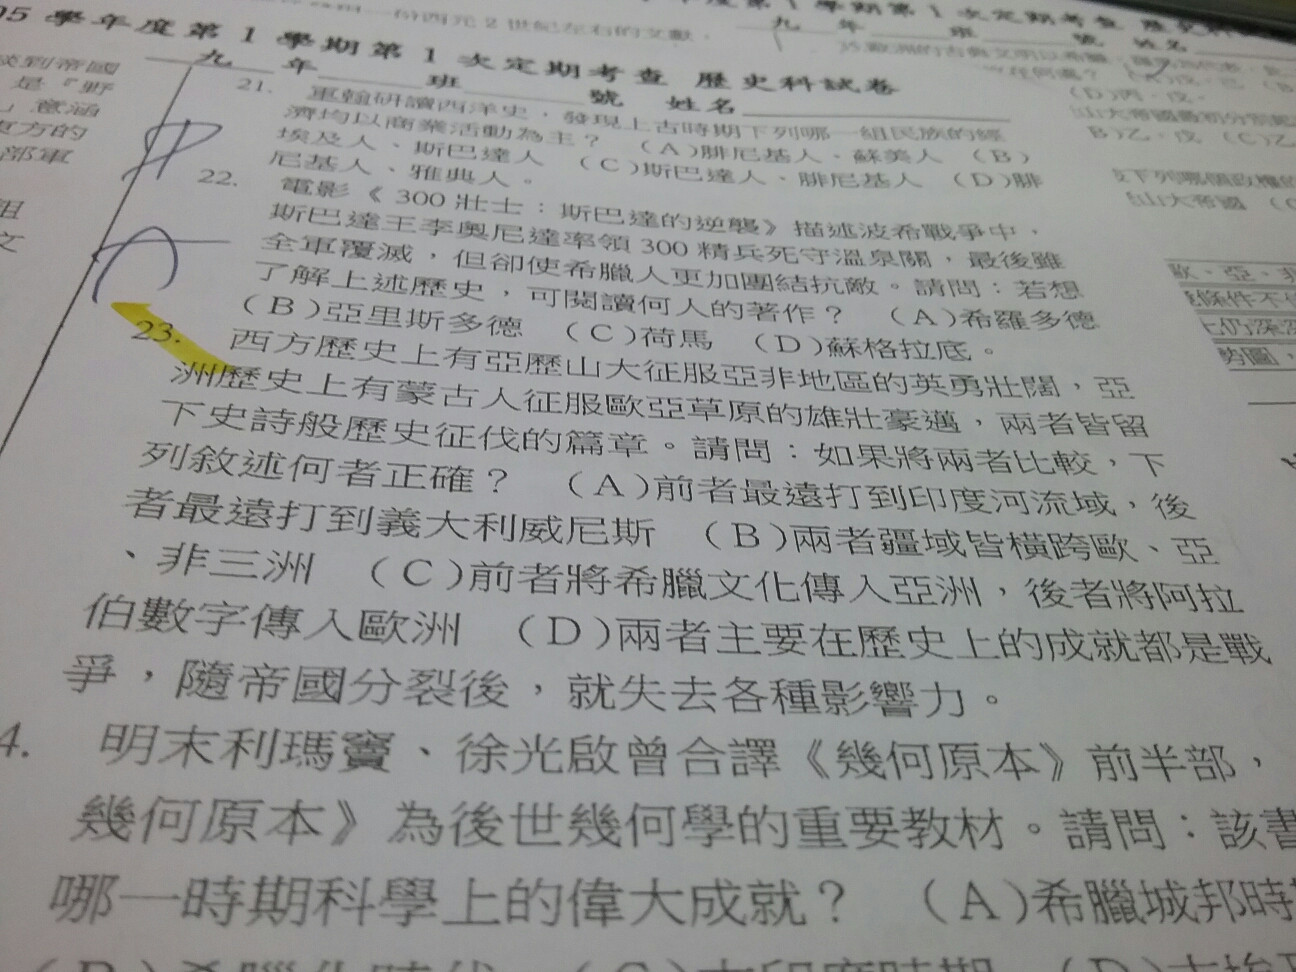 95 學年度第 1 學期第 1 次定期考查 歷史科試卷
九 年 班 號 姓名
21. 重翰研讀西洋史，發現上古時期下列哪一組民族的經
濟均以商業活動為主？ (A)腓尼基人、蘇美人 (B)
埃及人、斯巴達人 (C)斯巴達人、腓尼基人 (D)腓
尼基人、雅典人。
22. 電影《 300 壯士：斯巴達的逆襲》描述波希戰爭中，
斯巴達王李奧尼達率領 300 精兵死守溫泉關，最後雖
全軍覆滅，但卻使希臘人更加團結抗敵。請問：若想
了解上述歷史，可閱讀何人的著作？ (A)希羅多德
(B)亞里斯多德 (C)荷馬 (D)蘇格拉底。
23. 西方歷史上有亞歷山大征服亞非地區的英勇壯闊，亞
洲歷史上有蒙古人征服歐亞草原的雄壯豪邁，兩者皆留
下史詩般歷史征伐的篇章。請問：如果將兩者比較，下
列敘述何者正確？ (A)前者最遠打到印度河流域，後
者最遠打到義大利威尼斯 (B)兩者疆域皆橫跨歐、亞
、非三洲 (C)前者將希臘文化傳入亞洲，後者將阿拉
伯數字傳入歐洲 (D)兩者主要在歷史上的成就都是戰
爭，隨帝國分裂後，就失去各種影響力。
4. 明末利瑪竇、徐光啟曾合譯《幾何原本》前半部，
幾何原本》為後世幾何學的重要教材。請問：該書
哪一時期科學上的偉大成就？ (A)希臘城邦時
談到帝國
是『野
』意涵
東方的
部軍
組
文
(D)丙、戊。
B)乙、戊 (C)乙
山大帝國 (C
歐、亞、非
條件不
上仍深
勢圖，